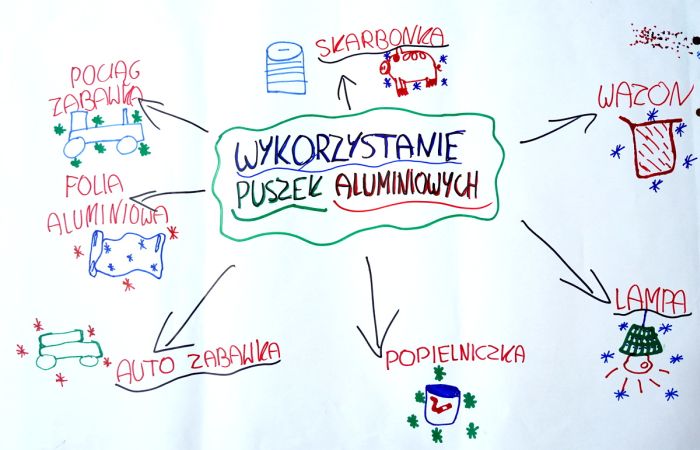 SKARBONKA
POCIĄG
ZABAWKA
WAZON
WYKORZYSTANIE
PUSZEK ALUMINIOWYCH
FOLIA
ALUMINIOWA
LAMPA
AUTO ZABAWKA
POPIELNICZKA